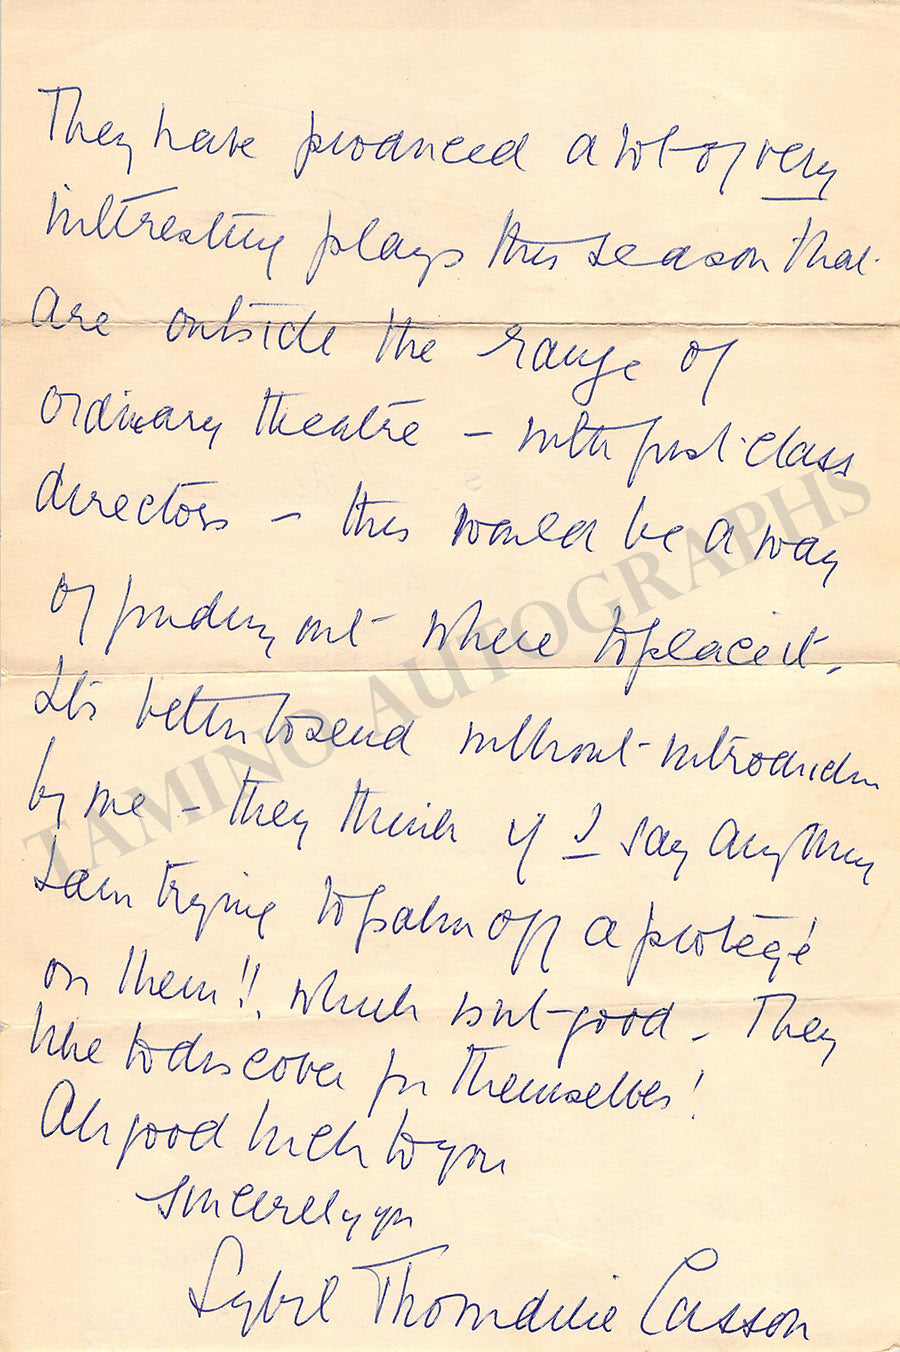 They have produced a lot of very
interesting plays this season that
are outside the range of
ordinary theatre – with first class
directors – this would be a way
of finding out where to place it.
It's better to send without introduction
by me – they think if I say anything
I am trying to palm off a protégé
on them!! which isn't good – They
like to discover for themselves!
All good luck to you
Sincerely yrs
Sybil Thorndike Casson
TAMINO AUTOGRAPHS